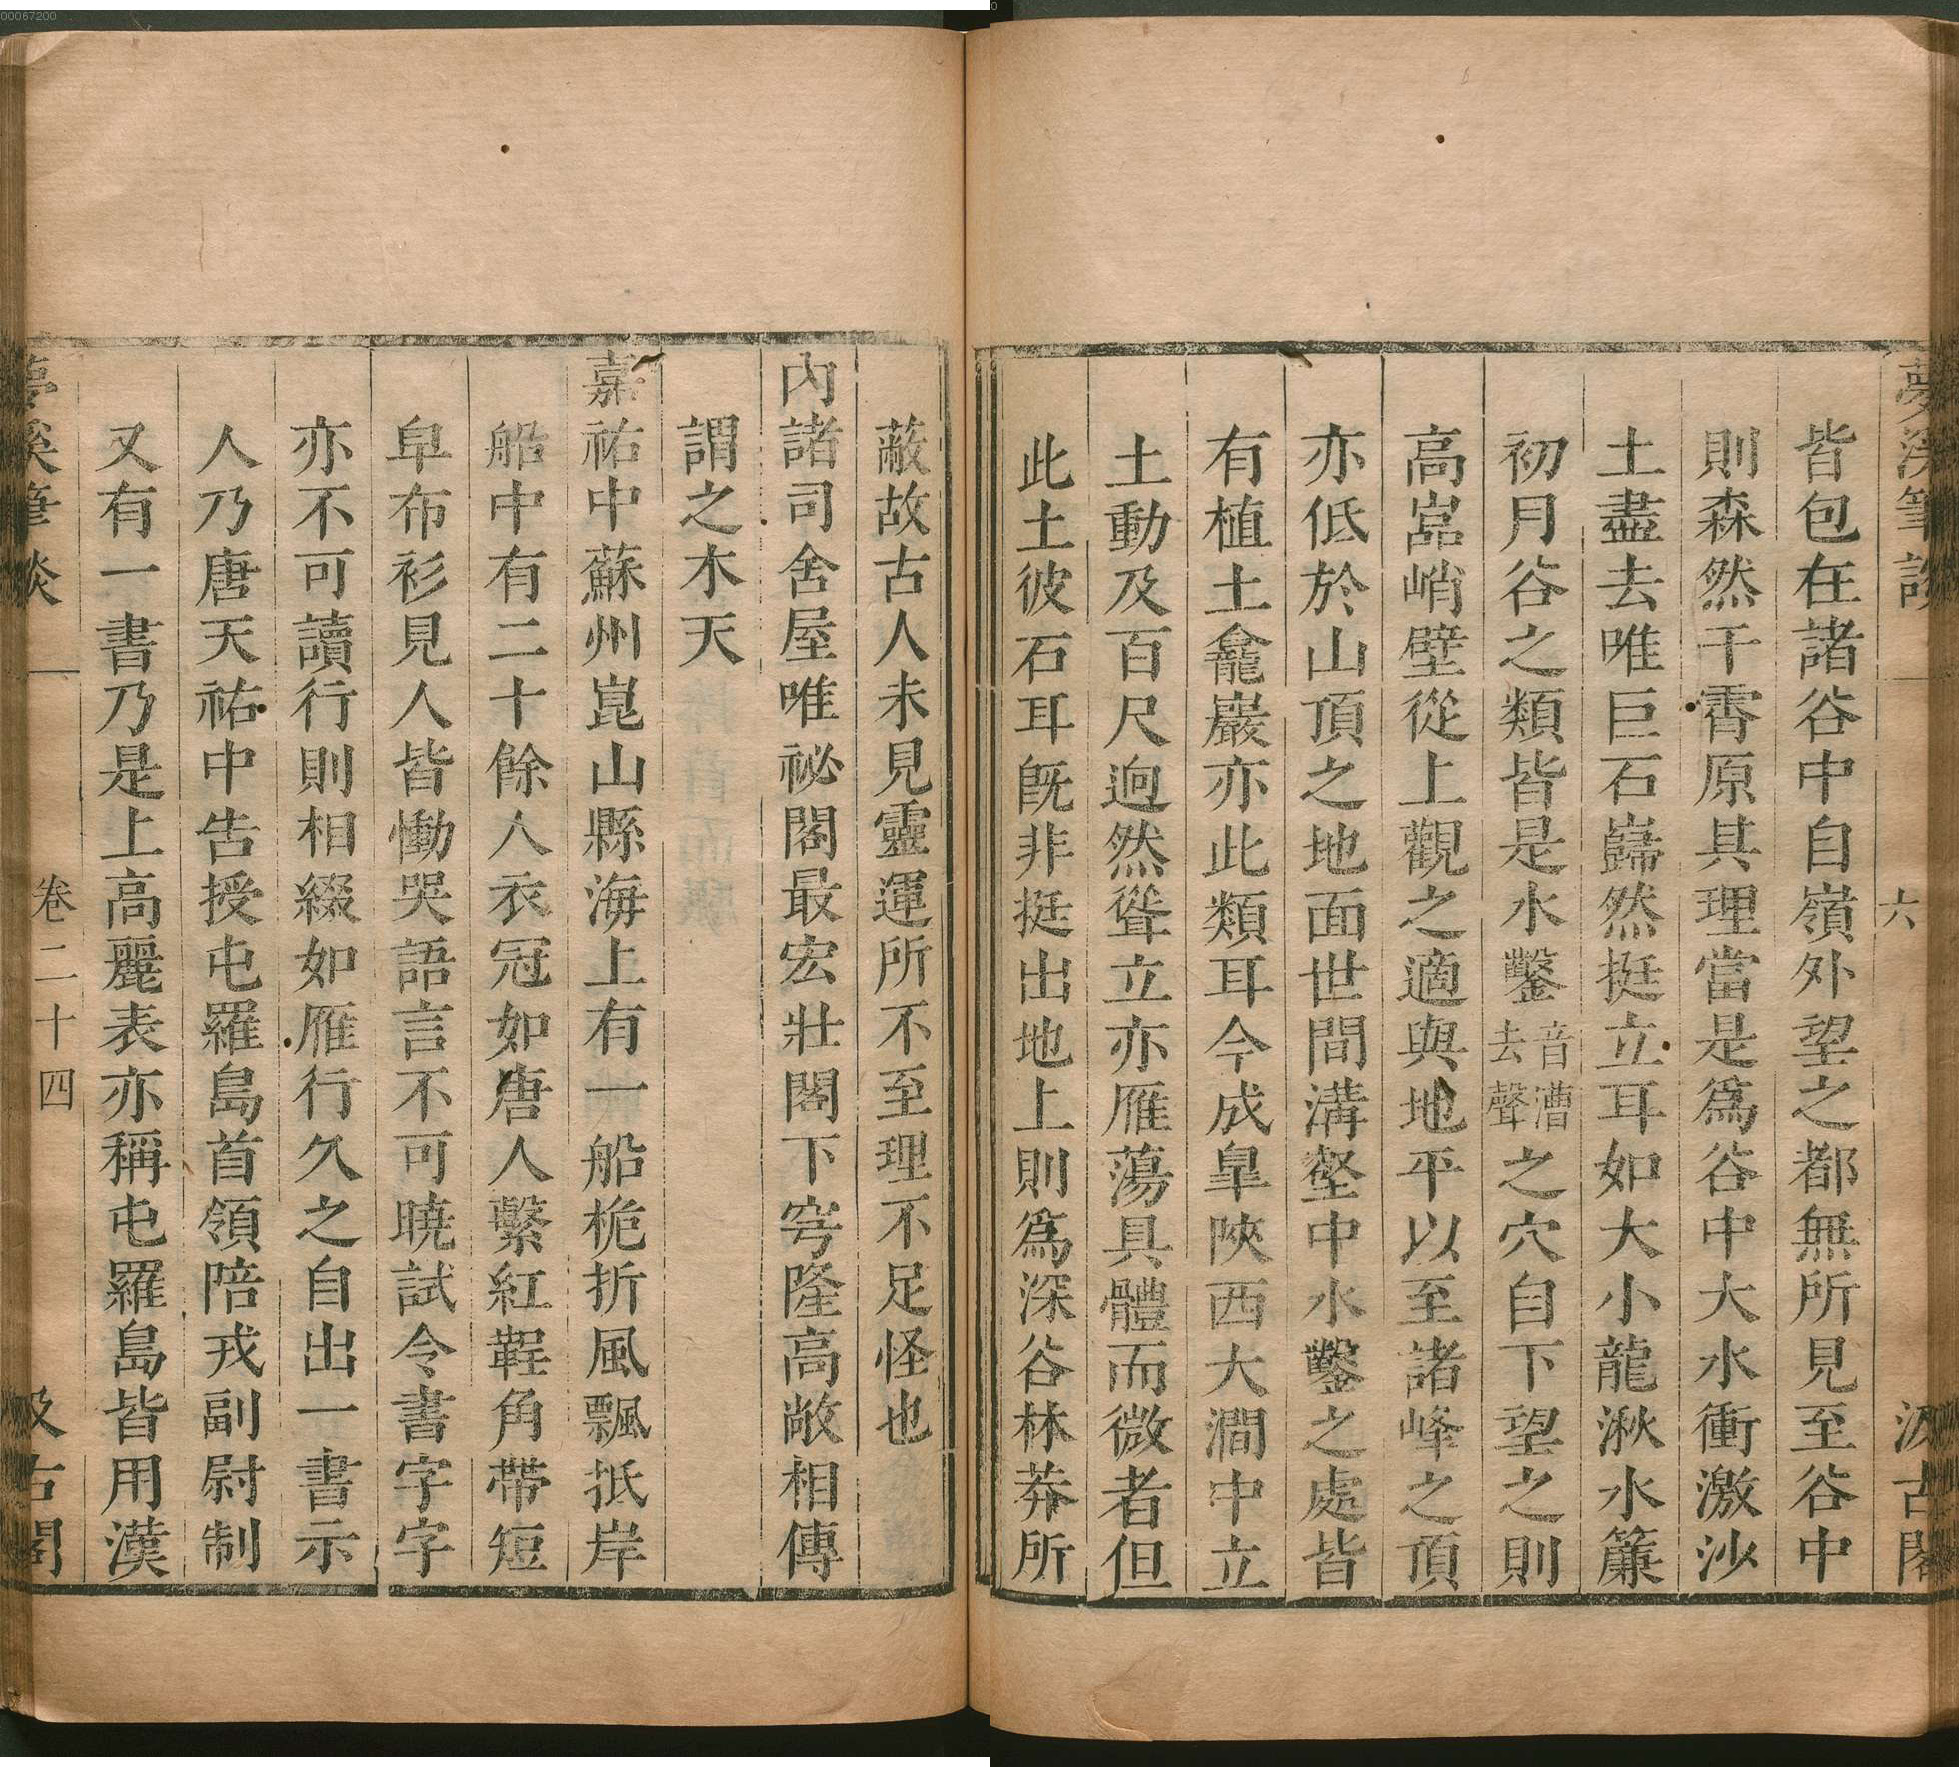 00067200
夢溪筆談 六 汲古閣
皆包在諸谷中自嶺外望之都無所見至谷中
則森然干霄原其理當是爲谷中大水衝激沙
土盡去唯巨石巋然挺立耳如大小龍湫水簾
初月谷之類皆是水鑿音漕去聲之穴自下望之則
高嵓峭壁從上觀之適與地平以至諸峰之頂
亦低於山頂之地面世間溝壑中水鑿之處皆
有植土龕巖亦此類耳今成臯陝西大澗中立
土動及百尺迥然聳立亦雁蕩具體而微者但
此土彼石耳旣非挺出地上則爲深谷林莽所
蔽故古人未見靈運所不至理不足怪也
內諸司舍屋唯祕閣最宏壯閣下穹隆高敞相傳
謂之木天
嘉祐中蘇州崑山縣海上有一船桅折風飄抵岸
船中有二十餘人衣冠如唐人繫紅鞓角帶短
皁布衫見人皆慟哭語言不可曉試令書字字
亦不可讀行則相綴如雁行久之自出一書示
人乃唐天祐中告授屯羅島首領陪戎副尉制
又有一書乃是上高麗表亦稱屯羅島皆用漢
夢溪筆談 卷二十四 汲古閣